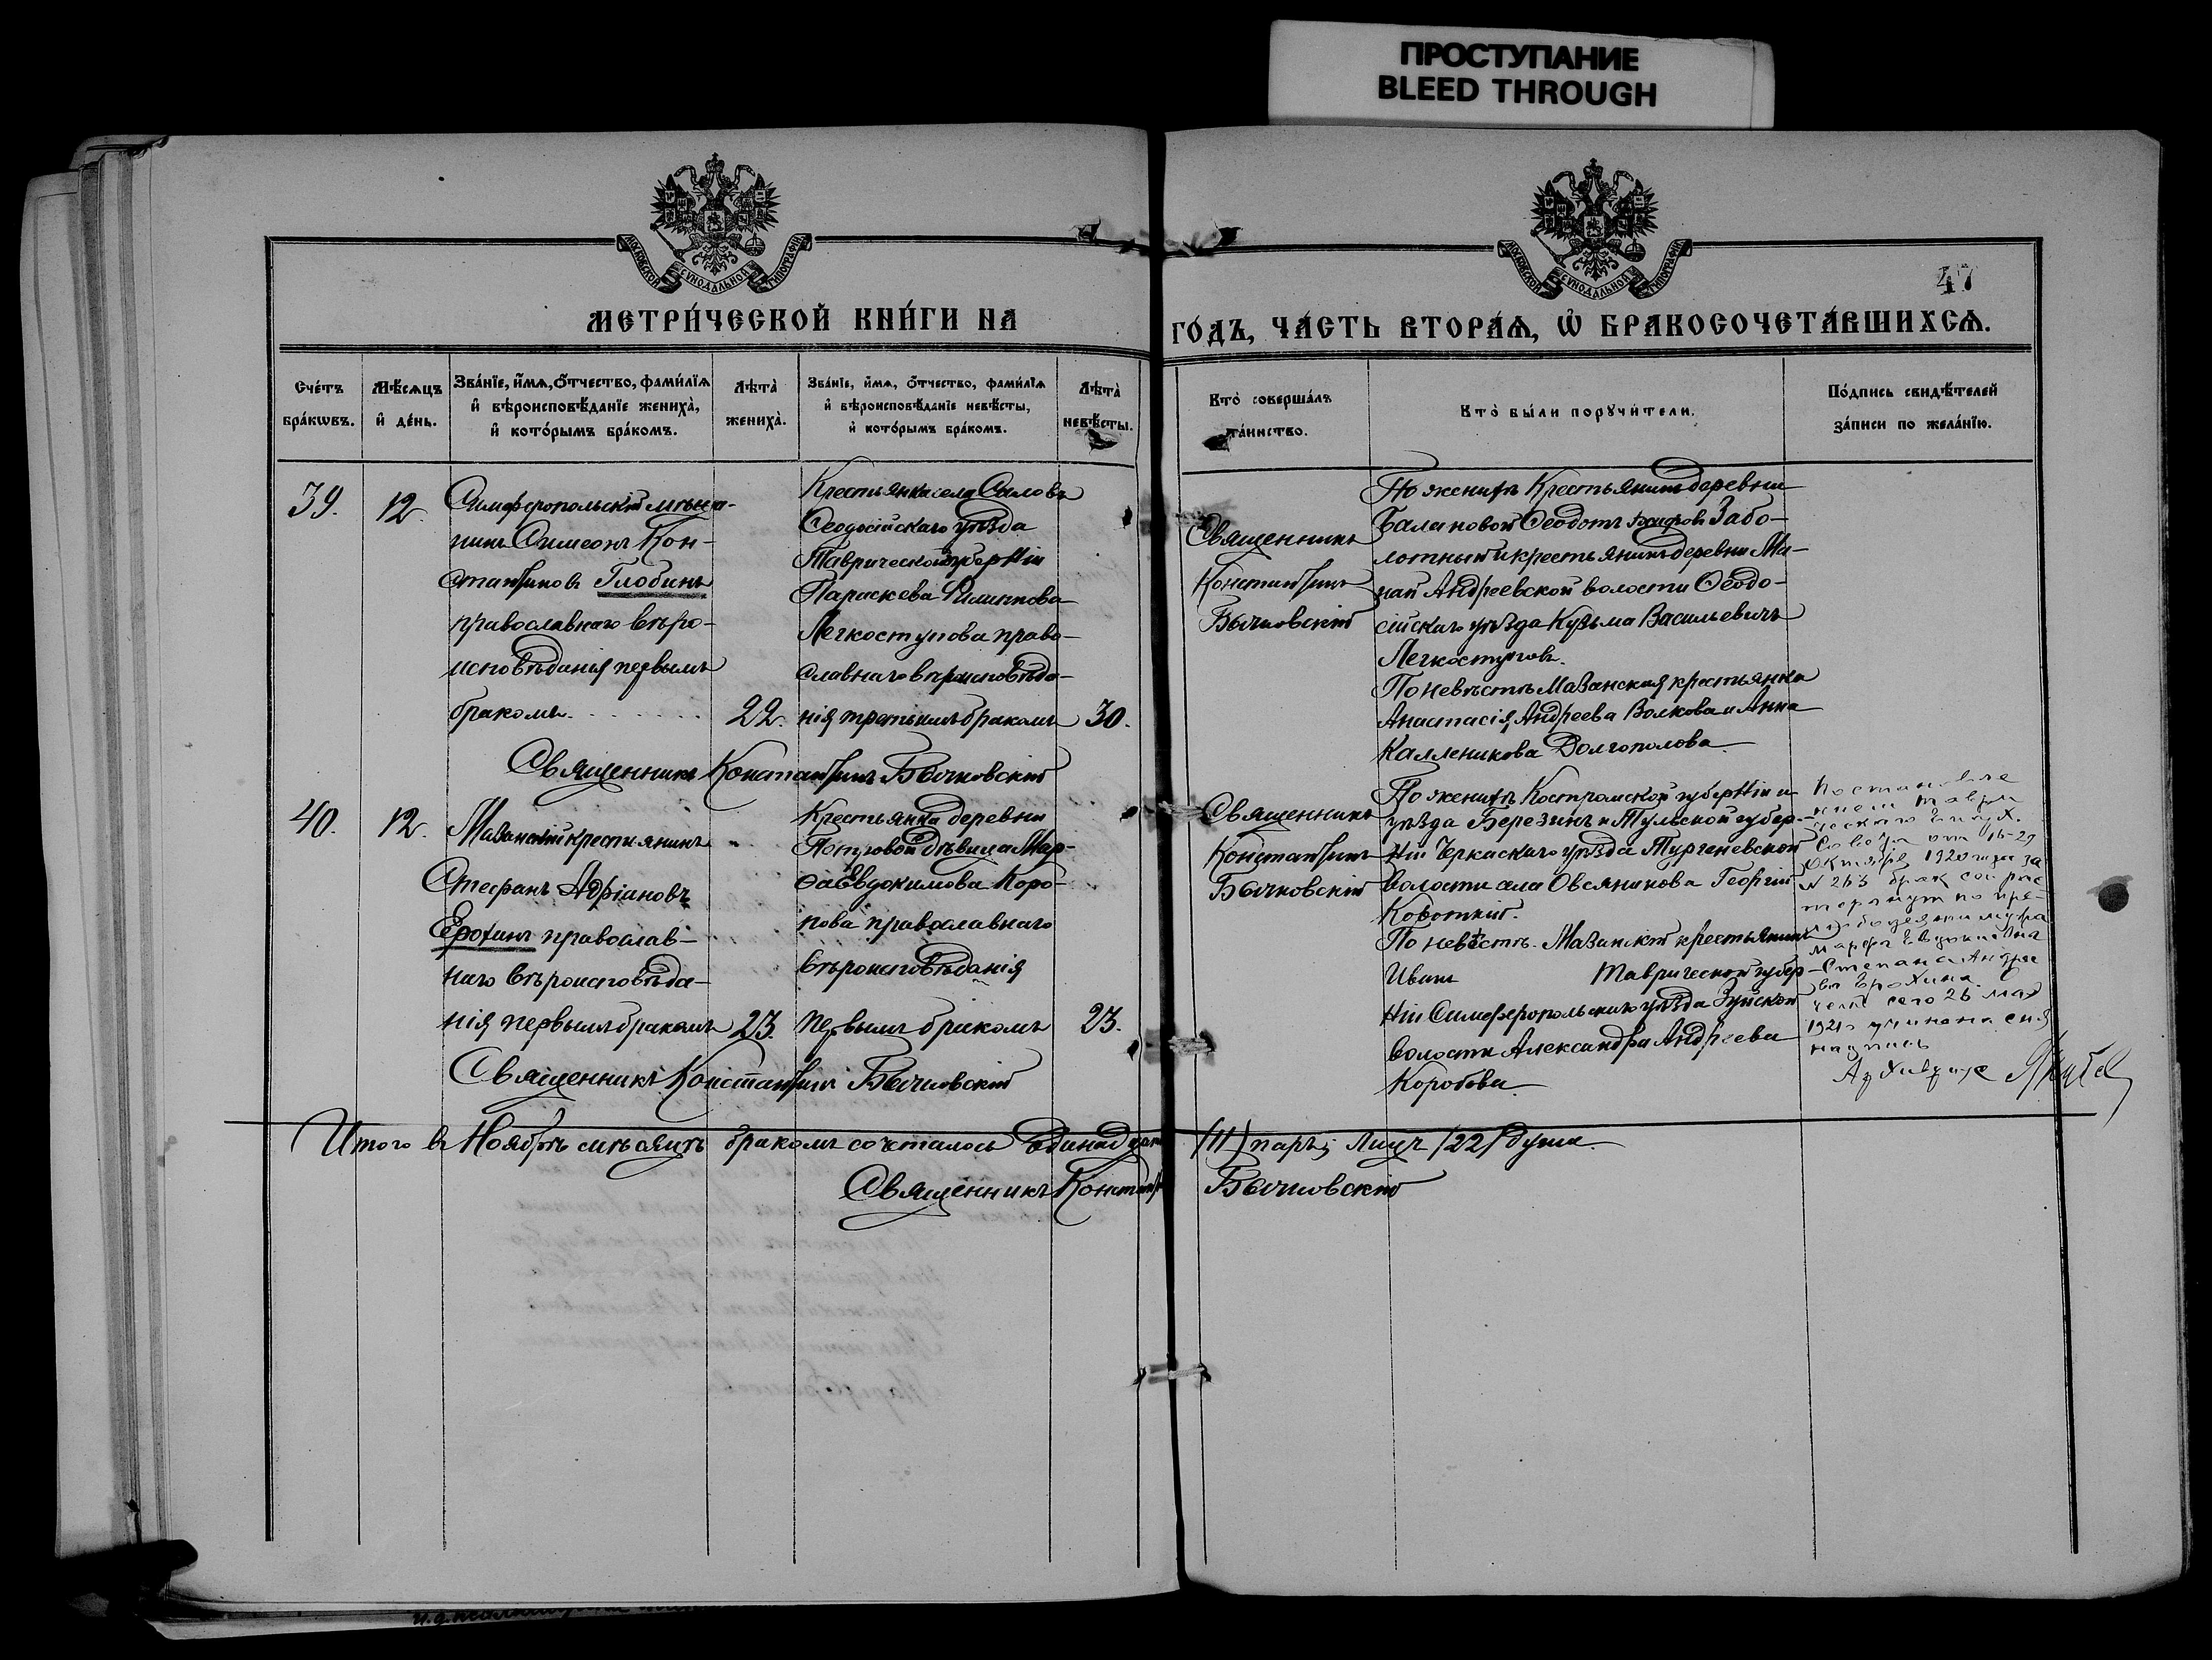 ПРОСТУПАНИЕ
BLEED THROUGH
МОСКОВСКОЙ СѴНОДАЛЬНОЙ ТИПОГРАФІИ
МОСКОВСКОЙ СѴНОДАЛЬНОЙ ТИПОГРАФІИ
47
МЕТРИ́ЧЕСКОЙ КНИ́ГИ НА
ГО́ДЪ, ЧА́СТЬ ВТОРА́Ѧ, Ѡ҆ БРАКОСОЧЕТА́ВШИХСѦ.
Сче́тъ бра́кѡвъ.
Мѣ́сѧцъ и҆ де́нь.
Зва́нїе, и҆́мѧ, ѻ҆́тчество, фами́лїѧ
и҆ вѣроисповѣ́данїе жениха̀,
и҆ кото́рымъ бра́комъ.
Лѣта̀ жениха̀.
Зва́нїе, и҆́мѧ, ѻ҆́тчество, фами́лїѧ
и҆ вѣроисповѣ́данїе невѣ́сты,
и҆ кото́рымъ бра́комъ.
Лѣта̀ невѣ́сты.
Кто̀ соверша́лъ та́инство.
Кто̀ бы́ли порꙋчи́тели.
По́дпись свидѣ́телей
за́писи по жела́нїю.
39.
12.
Симферопольскій мѣща-
нинъ Симеонъ Кон-
стантиновъ Глобинъ
православнаго вѣро-
исповѣданія первымъ
бракомъ.
22.
Крестьянка села
Ѳеодосійскаго уѣзда
Таврической губерніи
Параскева Филиппова
Легкоступова право-
славнаго вѣроисповѣда-
нія третьимъ бракомъ
30.
Священникъ
Константинъ
Бычковскій
По женихѣ Крестьянинъ деревни
Балановой Ѳеодотъ Забо-
лотный и крестьянинъ деревни Ма-
най Андреевской волости Ѳеодо-
сійскаго уѣзда Кузьма Васильевичъ
Легкоступовъ.
По невѣстѣ Мазанская крестьянка
Анастасія Андреева Волкова и Анна
Калленикова Долгополова
Священникъ Константинъ Бычковскій
40.
12.
Мазанскій крестьянинъ
Стефанъ Адріановъ
Ерохинъ православ-
наго вѣроисповѣда-
нія первымъ бракомъ
23.
Крестьянка деревни
Петровой дѣвица Мар-
ѳа Евдокимова Коро-
пова православнаго
вѣроисповѣданія
первымъ бракомъ
23.
Священникъ
Константинъ
Бычковскій
По женихѣ Костромской губерніи и
уѣзда Березинъ и Тульской губер-
ніи Черкаскаго уѣзда Тургеневской
волости села Овсяникова Георгій
Короткій.
По невѣстѣ Мазанскій крестьянинъ
Иванъ Таврической губер-
ніи Симферопольскаго уѣзда Зуйской
волости Александра Андреева
Коробова
Постановле
нием Таврич
еского Епарх.
Совета от 16-29
октября 1920 года за
№ 263 брак сей рас
торгнут по пре-
любодеянию мужа
Марфы Евдокимовны
Степана Андрее
ва Ерохина.
чем сего 26 мая
1921 г учинена сия
надпись
Священникъ Константинъ Бычковскій
Итого въ Ноябрѣ мѣсяцѣ бракомъ сочеталось одинадцать (11) паръ; лицъ (22) душа.
Священникъ Константинъ Бычковскій